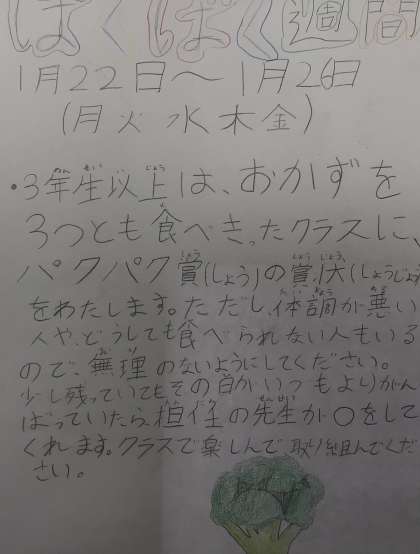 ぱくぱく週間
1月22日～1月26日
(月火水木金)
・3年生以上は、おかずを
3つとも食べきったクラスに、
パクパク賞(しょう)の賞状(しょうじょう)
をわたします。ただし、体調が悪い
人や、どうしても食べられない人もいる
ので、無理のないようにしてください。
少し残っていてもその がいつもよりがん
ばっていたら、担任の先生が〇をして
くれます。クラスで楽しんで取り組んでくだ
さい。